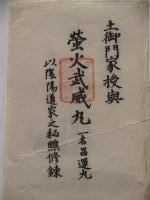 土御門家授與
螢火武威丸
一名昌運丸
以陰陽道家之秘懸修錬